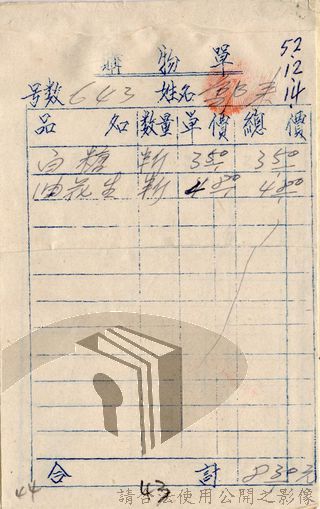 購物單
52.12.14.
号数 643 姓名 鄭
品名 数量 單價 總價
白糖 1斤 3.50 3.50
油花生 1斤 4.80 4.80
合計 8.30元
44 43
請合法使用公開之影像